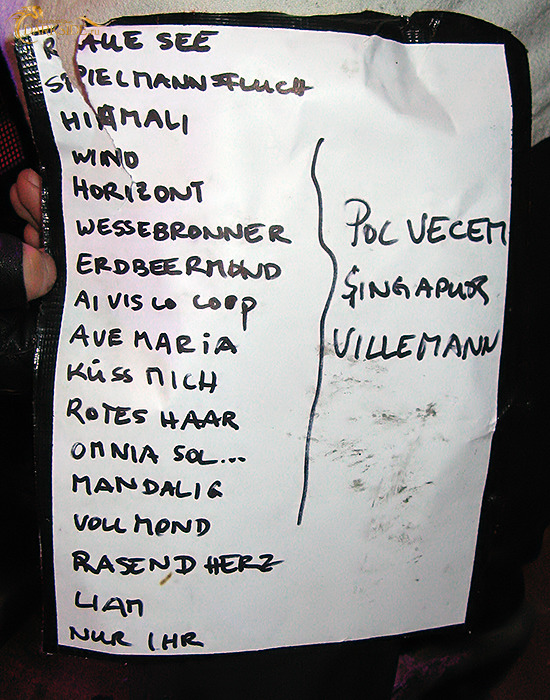 RAUE SEE
SPIELMANNSFLUCH
HIAMALI
WIND
HORIZONT
WESSEBRONNER
ERDBEERMOND
AI VIS LO LOOP
AVE MARIA
KÜSS MICH
ROTES HAAR
OMNIA SOL...
MANDALIG
VOLLMOND
RASEND HERZ
LIAM
NUR IHR
POC VECEM
SINGAPUR
VILLEMANN